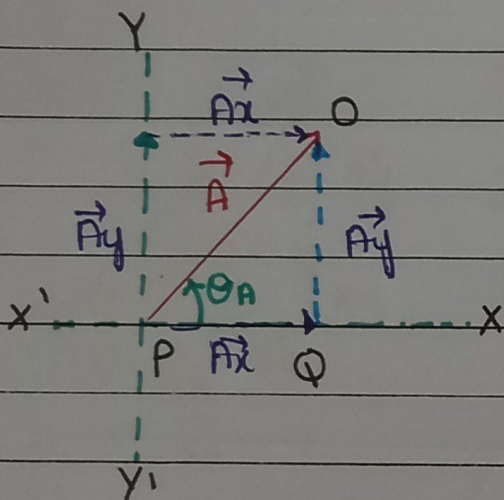 Y
Ax O
A
Ay Ay
θA
X' X
P Ax Q
Y'